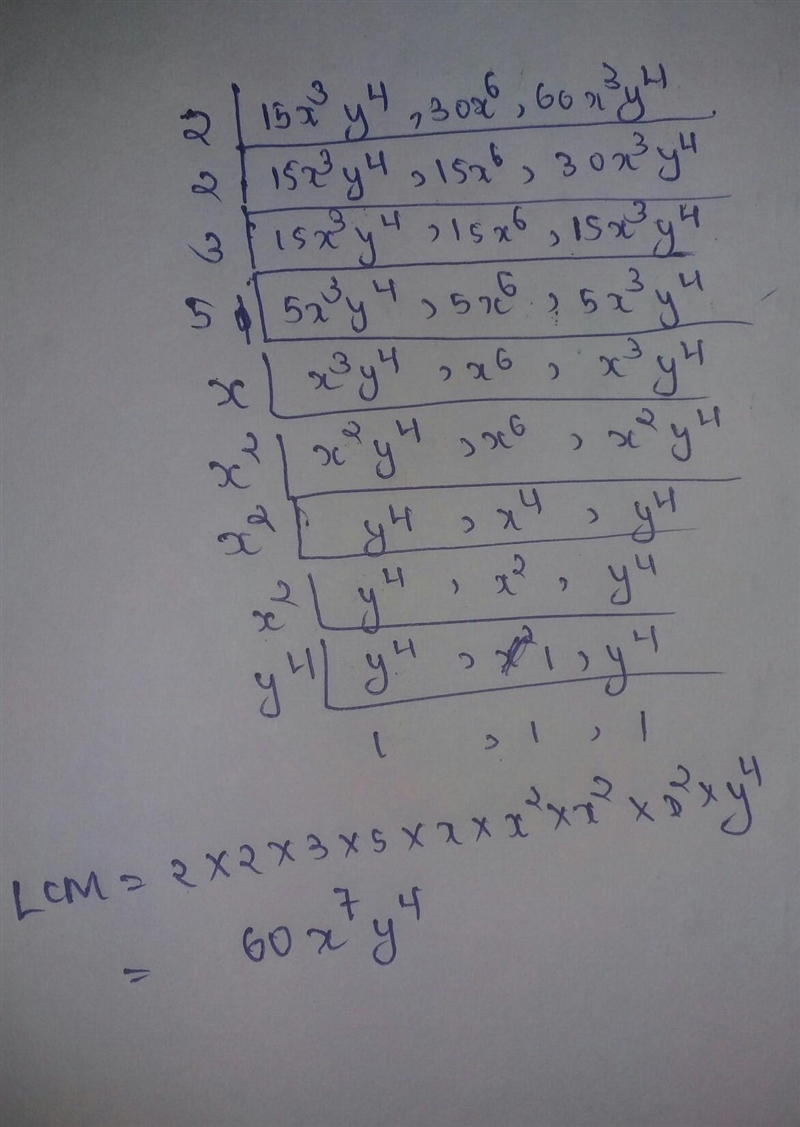 2 | 15x³y⁴, 30x⁶, 60x³y⁴
2 | 15x³y⁴, 15x⁶, 30x³y⁴
3 | 15x³y⁴, 15x⁶, 15x³y⁴
5 | 5x³y⁴, 5x⁶, 5x³y⁴
x | x³y⁴, x⁶, x³y⁴
x² | x²y⁴, x⁶, x²y⁴
x² | y⁴, x⁴, y⁴
x² | y⁴, x², y⁴
y⁴ | y⁴, 1, y⁴
1, 1, 1
LCM = 2×2×3×5×x×x²×x²×x²×y⁴
= 60x⁷y⁴